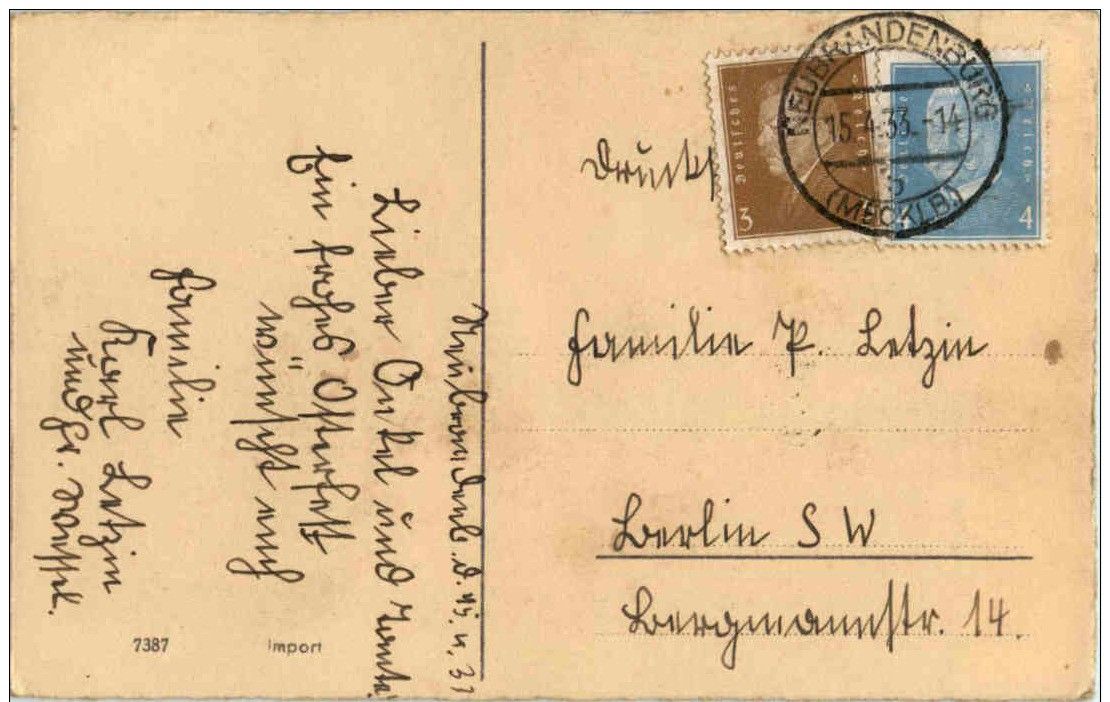 Neubrandenb. d. 15. 4. 33
Lieber Onkel und Tante!
Ein frohes Osterfest
wünscht euch
Familie
Karl Letzin
und Fr.
7387 Import
Drucks
Deutsches Reich
3
Deutsches Reich
4 4
NEUBRANDENBURG
15.4.33.-14
(MECKLB)
Familie P. Letzin
Berlin S W
Bergmannstr. 14.